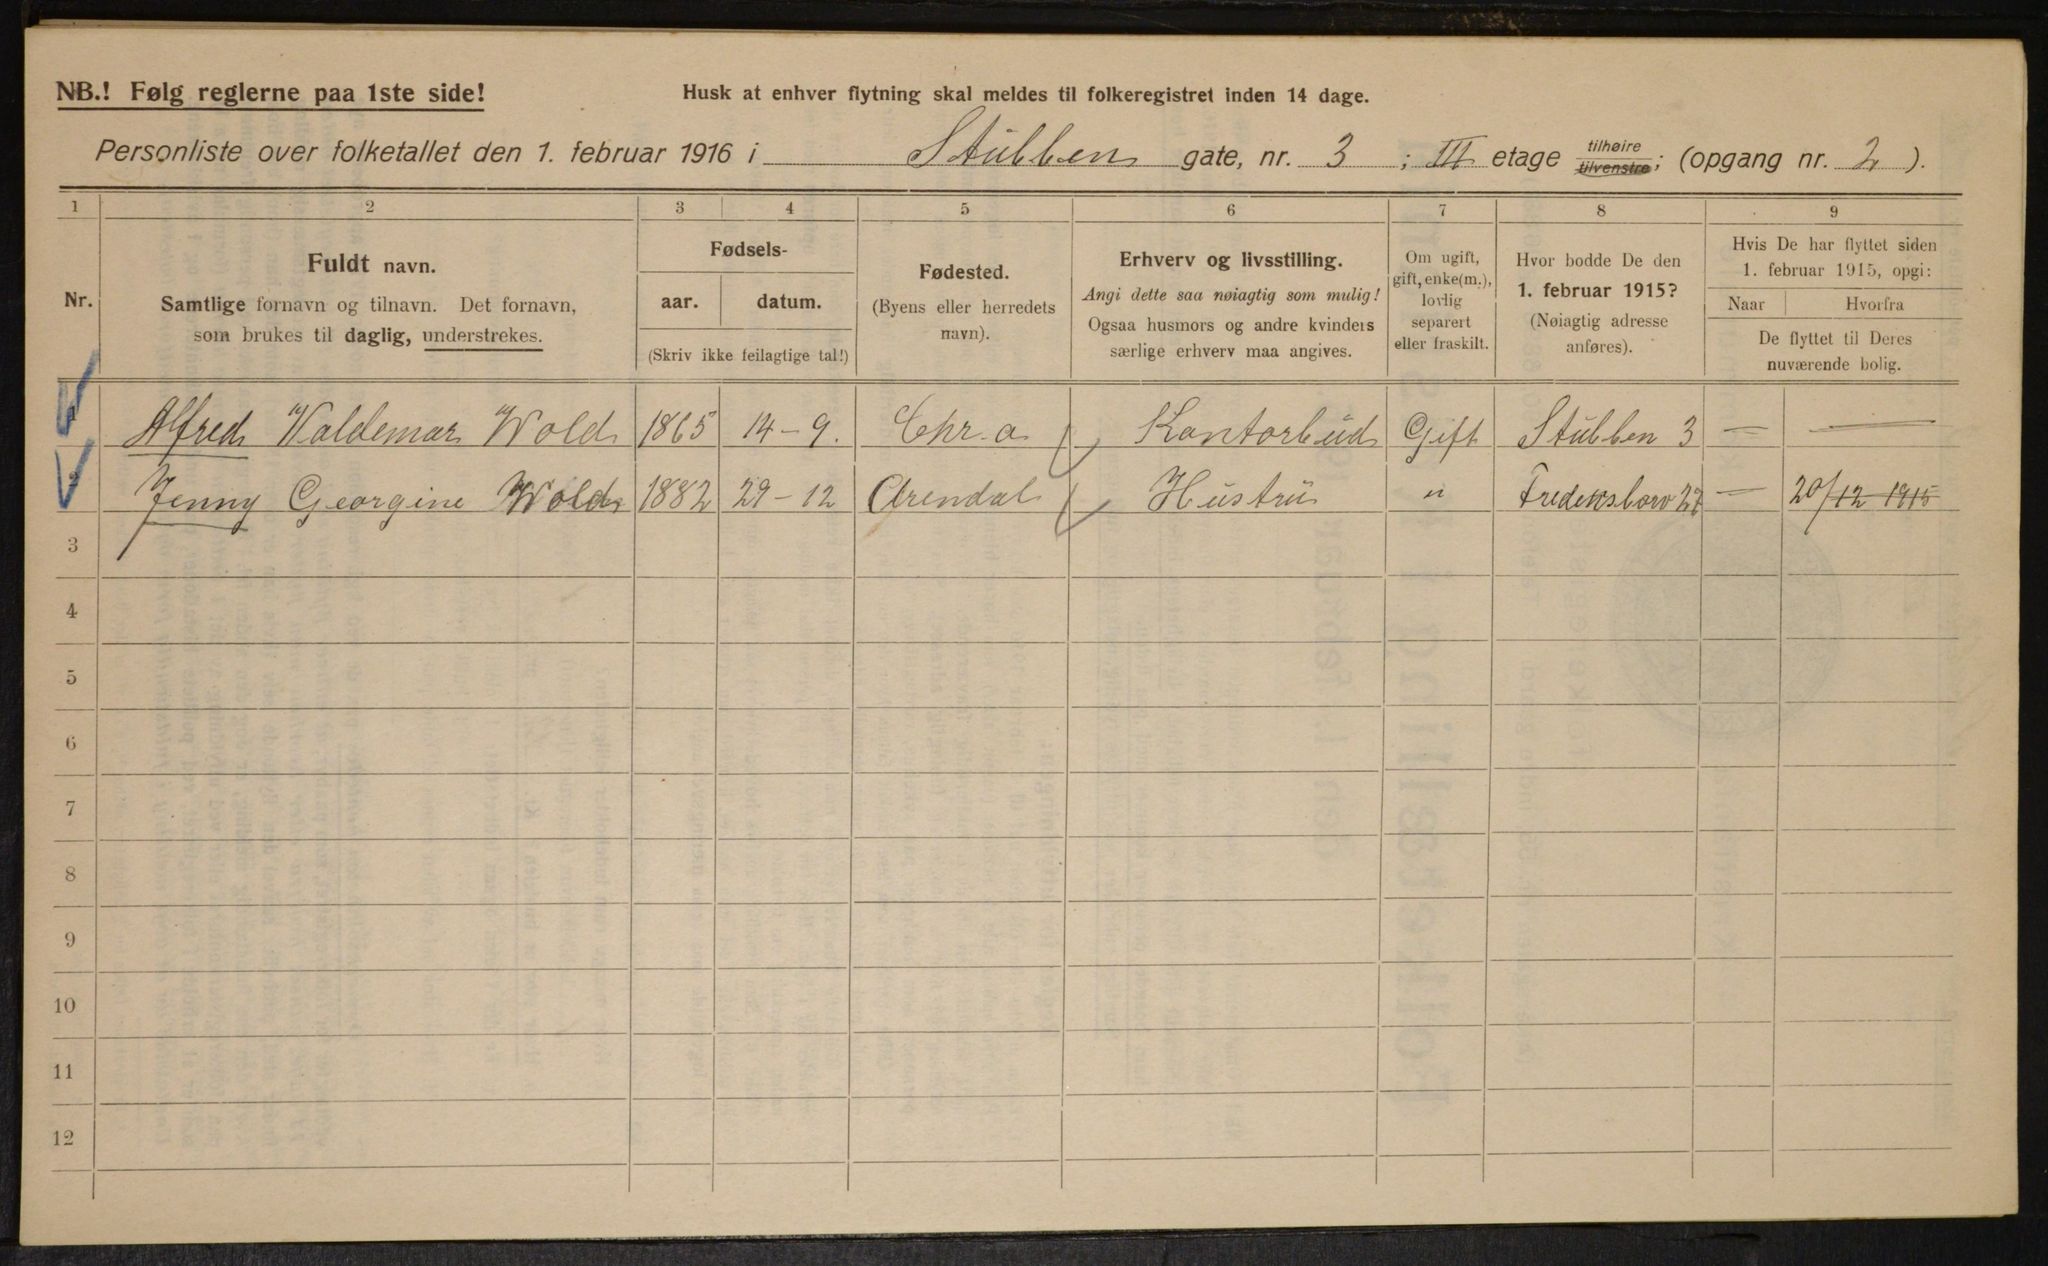 NB.! Følg reglerne paa 1ste side!
Husk at enhver flytning skal meldes til folkeregistret inden 14 dage.
Personliste over folketallet den 1. februar 1916 i Stubben gate, nr. 3 ; III etage tilhøire tilvenstre; (opgang nr. 2).
1 2 3 4 5 6 7 8 9
Nr.
Fuldt navn.
Samtlige fornavn og tilnavn. Det fornavn,
som brukes til daglig, understrekes.
Fødsels-
aar. datum.
(Skriv ikke feilagtige tal!)
Fødested.
(Byens eller herredets
navn).
Erhverv og livsstilling.
Angi dette saa nøiagtig som mulig!
Ogsaa husmors og andre kvinders
særlige erhverv maa angives.
Om ugift,
gift, enke(m.),
lovlig
separert
eller fraskilt.
Hvor bodde De den
1. februar 1915?
(Nøiagtig adresse
anføres).
Hvis De har flyttet siden
1. februar 1915, opgi:
Naar Hvorfra
De flyttet til Deres
nuværende bolig.
1 Alfred Valdemar Wold 1865 14-9. Chr.a Kontorbud Gift Stubben 3 — —
2 Jenny Georgine Wold 1882 29-12 Arendal Hustru " 27 — 20/12 1915
3
4
5
6
7
8
9
10
11
12